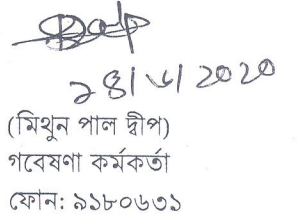 ২৪/৬/2020
(মিথুন পাল দ্বীপ)
গবেষণা কর্মকর্তা
ফোন: ৯১৮০৬৩১